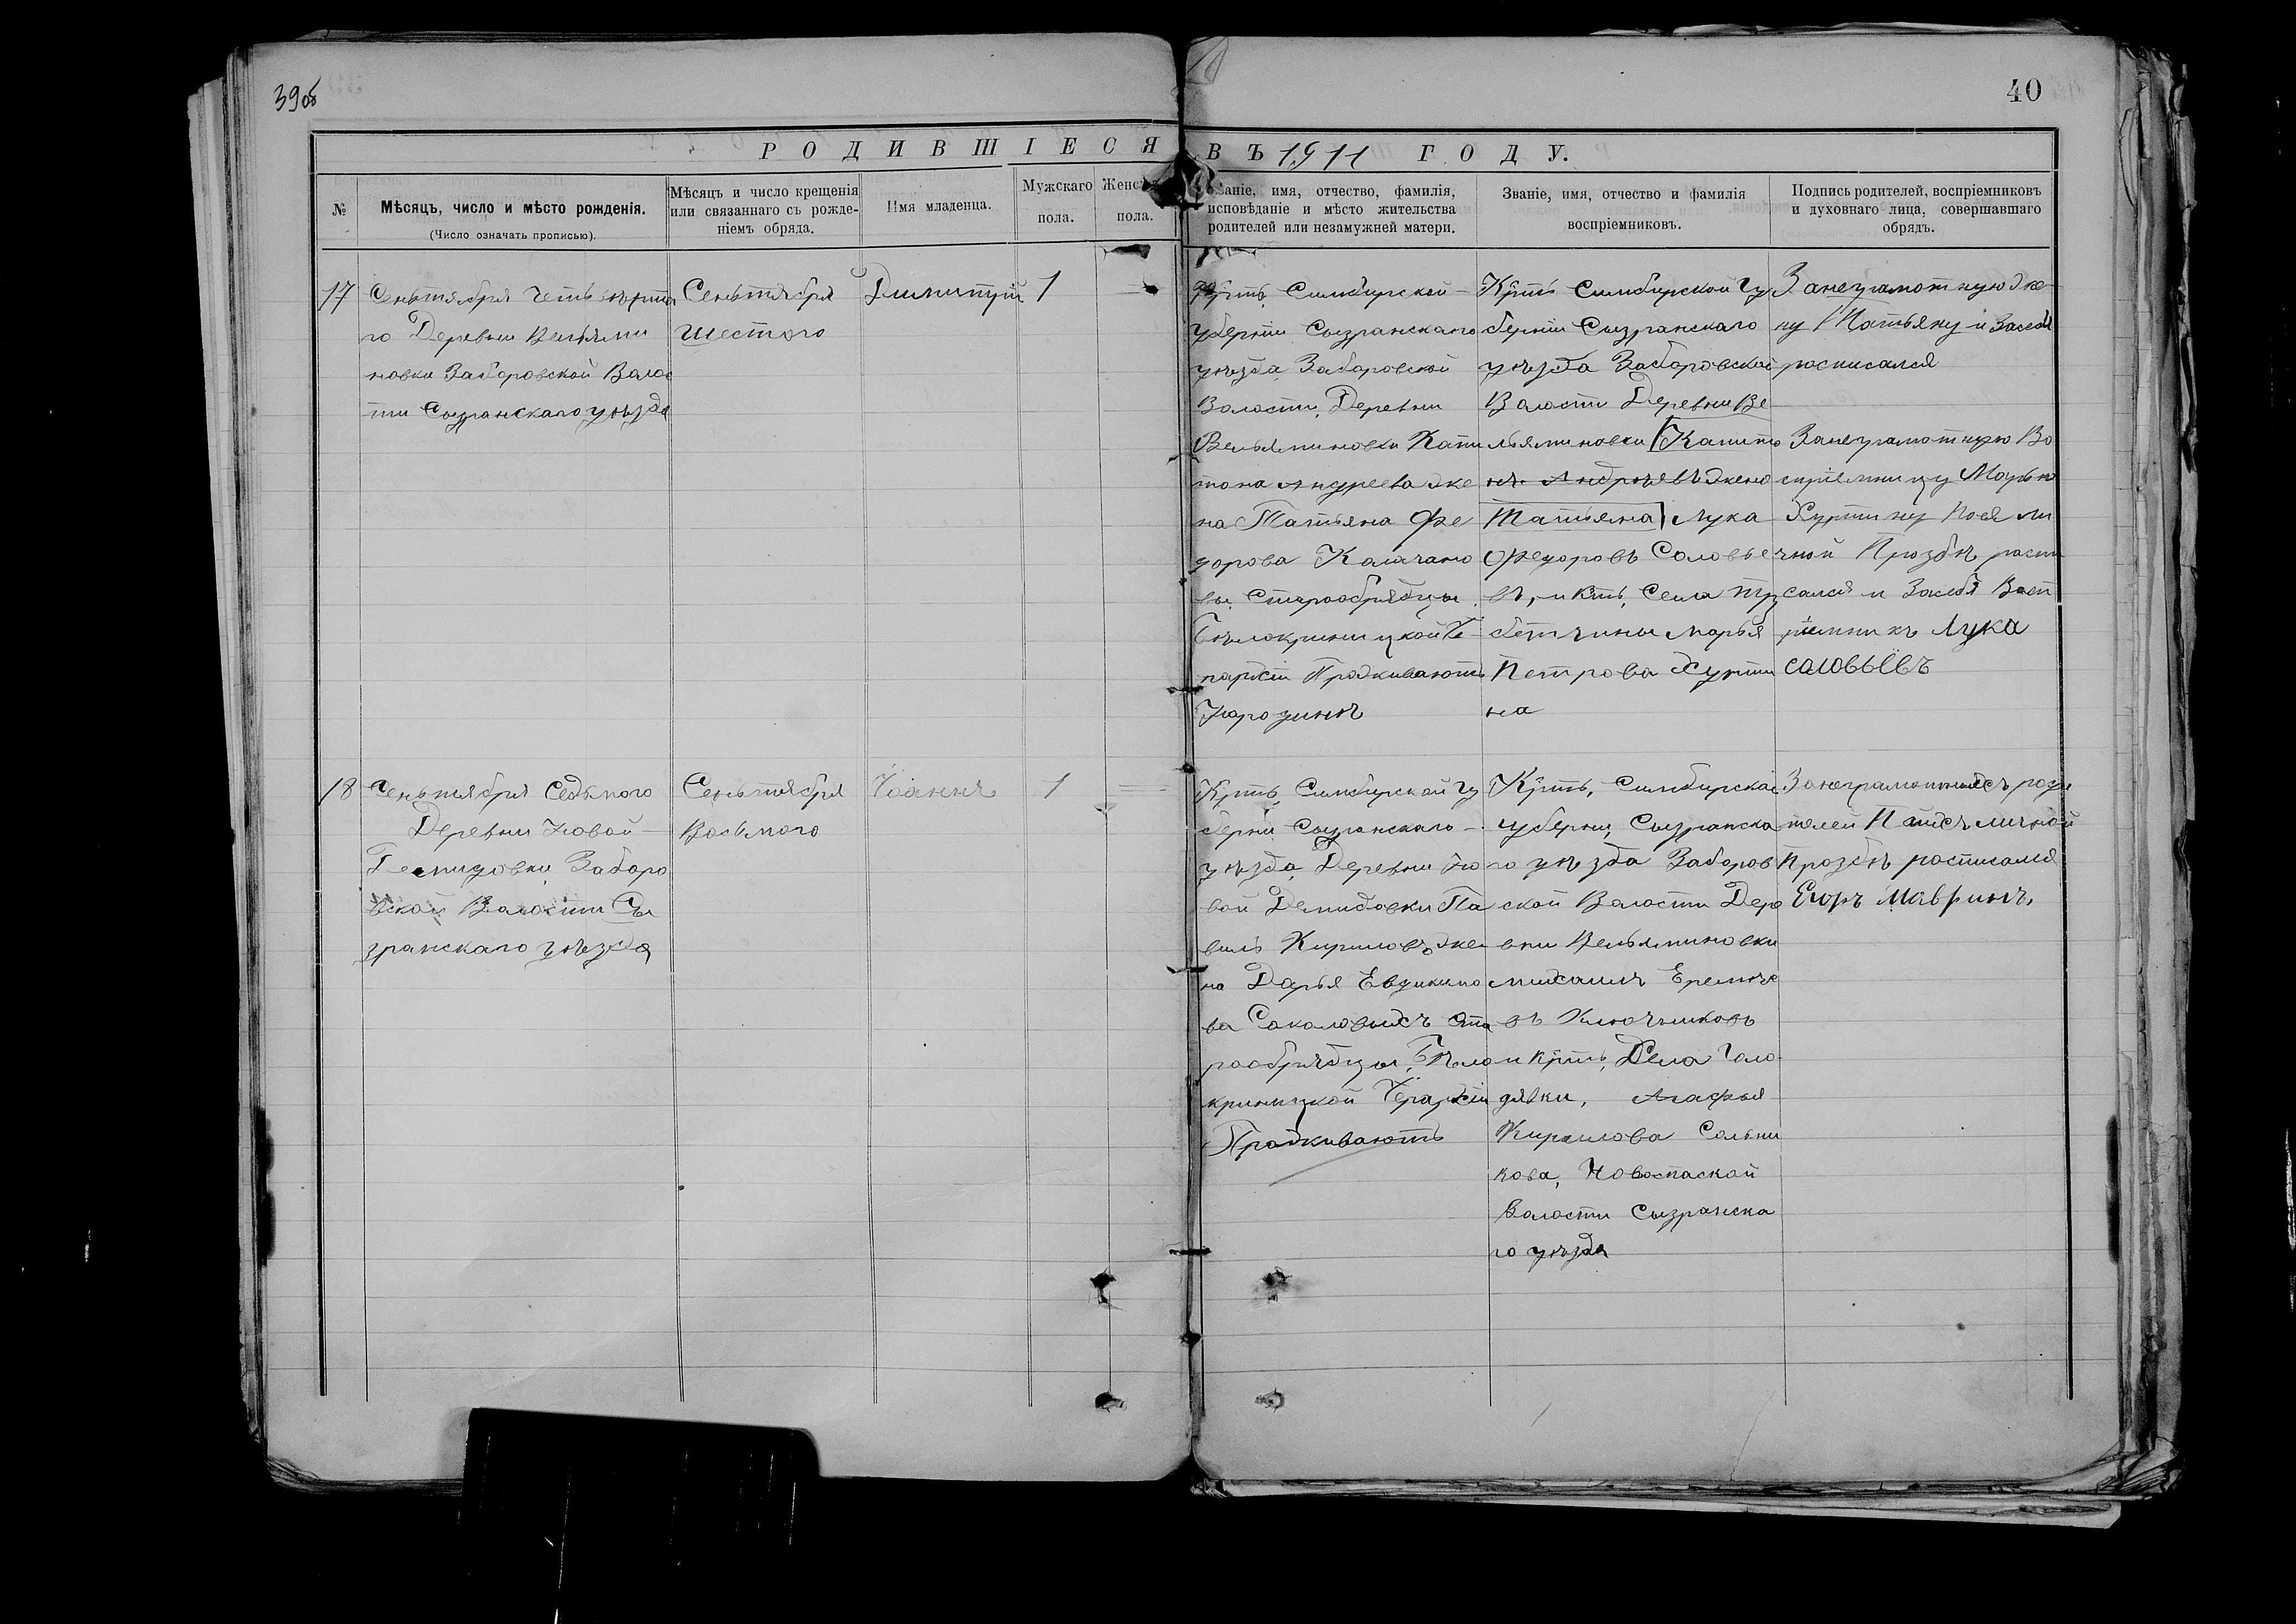 39об
40
РОДИВШІЕСЯ ВЪ 1911 ГОДУ.
№
Мѣсяцъ, число и мѣсто рожденія.
(Число означать прописью).
Мѣсяцъ и число крещенія
или связаннаго съ рожде-
ніемъ обряда.
Имя младенца.
Мужскаго
пола.
Женск
пола.
Званіе, имя, отчество, фамилія,
исповѣданіе и мѣсто жительства
родителей или незамужней матери.
Званіе, имя, отчество и фамилія
воспріемниковъ.
Подпись родителей, воспріемниковъ
и духовнаго лица, совершавшаго
обрядъ.
17
Сеньтября Четьвѣрта
го Деревни Вельями
новки Заборовской Волос
ти Сызранскаго уѣзда
Сеньтября
Шестого
Димитрій
1
Крть, Симбирской
губерніи Сызранскаго
уѣзда Заборовской
Волости, Деревни
Вельяминовки Капи
тона Андреева же
на Татьяна Фе
дорова Калачано
вы, Старообрядцы
Бѣлокриницкой Іе
рархіи Проживають
Народинѣ
Крть Симбирской Гу
берніи Сызранскаго
уѣзда Заборовской
Волости Деревни Ве
льяминовки Капито
нъ Андрѣевъ жена
Татьяна Лука
Федоровъ Соловье
въ, и кть, Села Тру
бетчины Марья
Петрова Хурти
на
Занеграмотную же
ну Татьяну и Засебя
росписался
Занеграмотную Во
спріемницу Марью
Хуртину Поея ли
чной Прозбѣ роспи
сался и Засебя Восп
ріемникъ Лука
соловьевъ
18
Сеньтября Седьмого
Деревни Новой
Демидовки Заборо
вской Волости Сы
зранскаго уѣзда
Сеньтября
Восьмого
Іоаннъ
1
Крть, Симбирской Гу
берніи Сызранскаго
уѣзда, Деревни Но
вой Демидовки Па
вилъ Кириловъ же
на Дарья Евдикимо
ва Соколовыхъ Ста
рообрядцы, Бѣло
криницкой Іерархіи
Проживають
Крть, Симбирской
губерни, Сызранска
го уѣзда Заборов
ской Волости Дере
вни Вельяминовки
михаилъ Еремѣе
въ Ключниковъ
и Крть, Села Голо
дявки, Агафья
Кирилова Сальни
кова, Новоспаской
Волости Сызранска
го уѣзда
Занеграмотныхъ роди
телей Поихъ личной
Прозбѣ росписался
Егоръ Мавринъ,